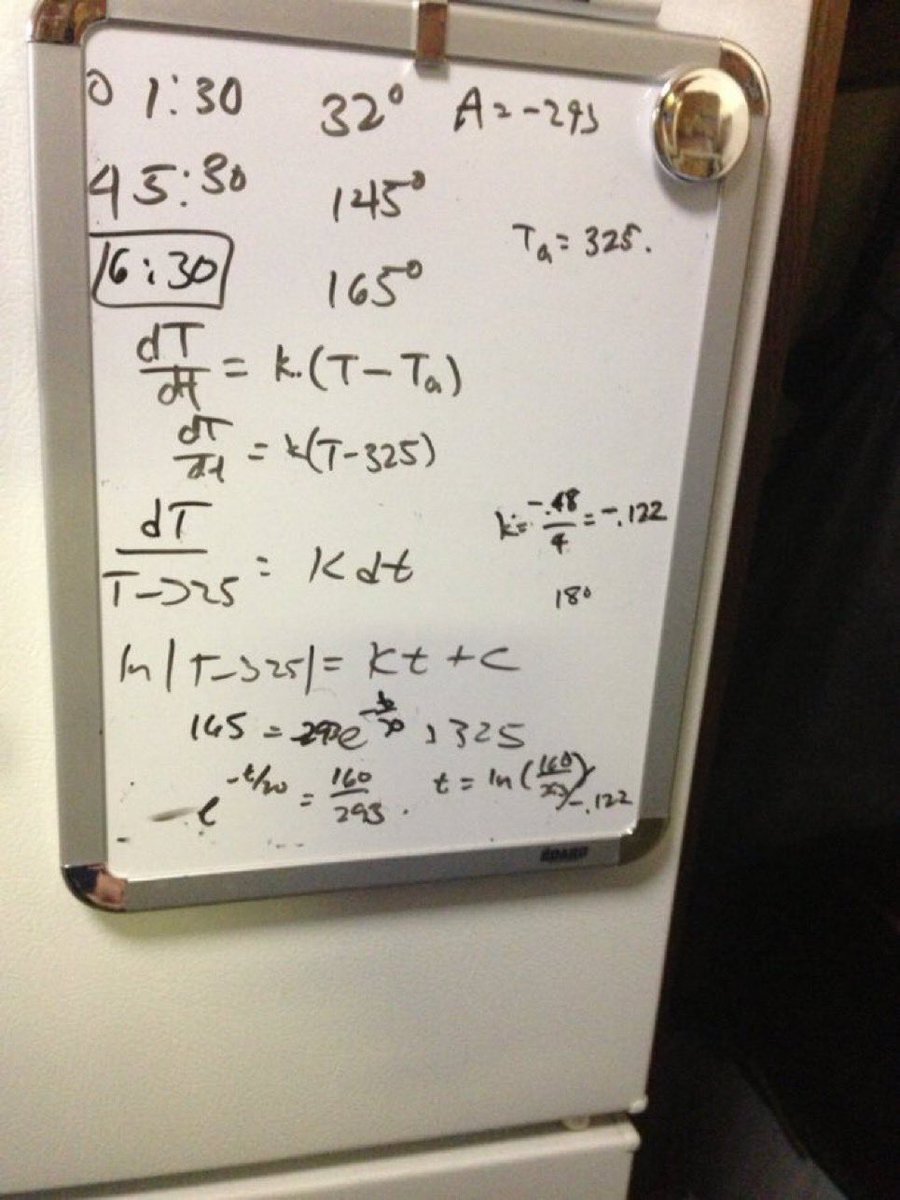 0 1:30 32° A = -293
4 5:30 145°
Ta = 325.
6:30 165°
dT/dt = k.(T-Ta)
dT/dt = k(T-325)
dT/T-325 = k dt
k = -.48/4 = -.122
18°
ln|T-325| = kt + C
165 = e 325
e^-t/20 = 160/293. t = ln(160/) -.122
BOARD